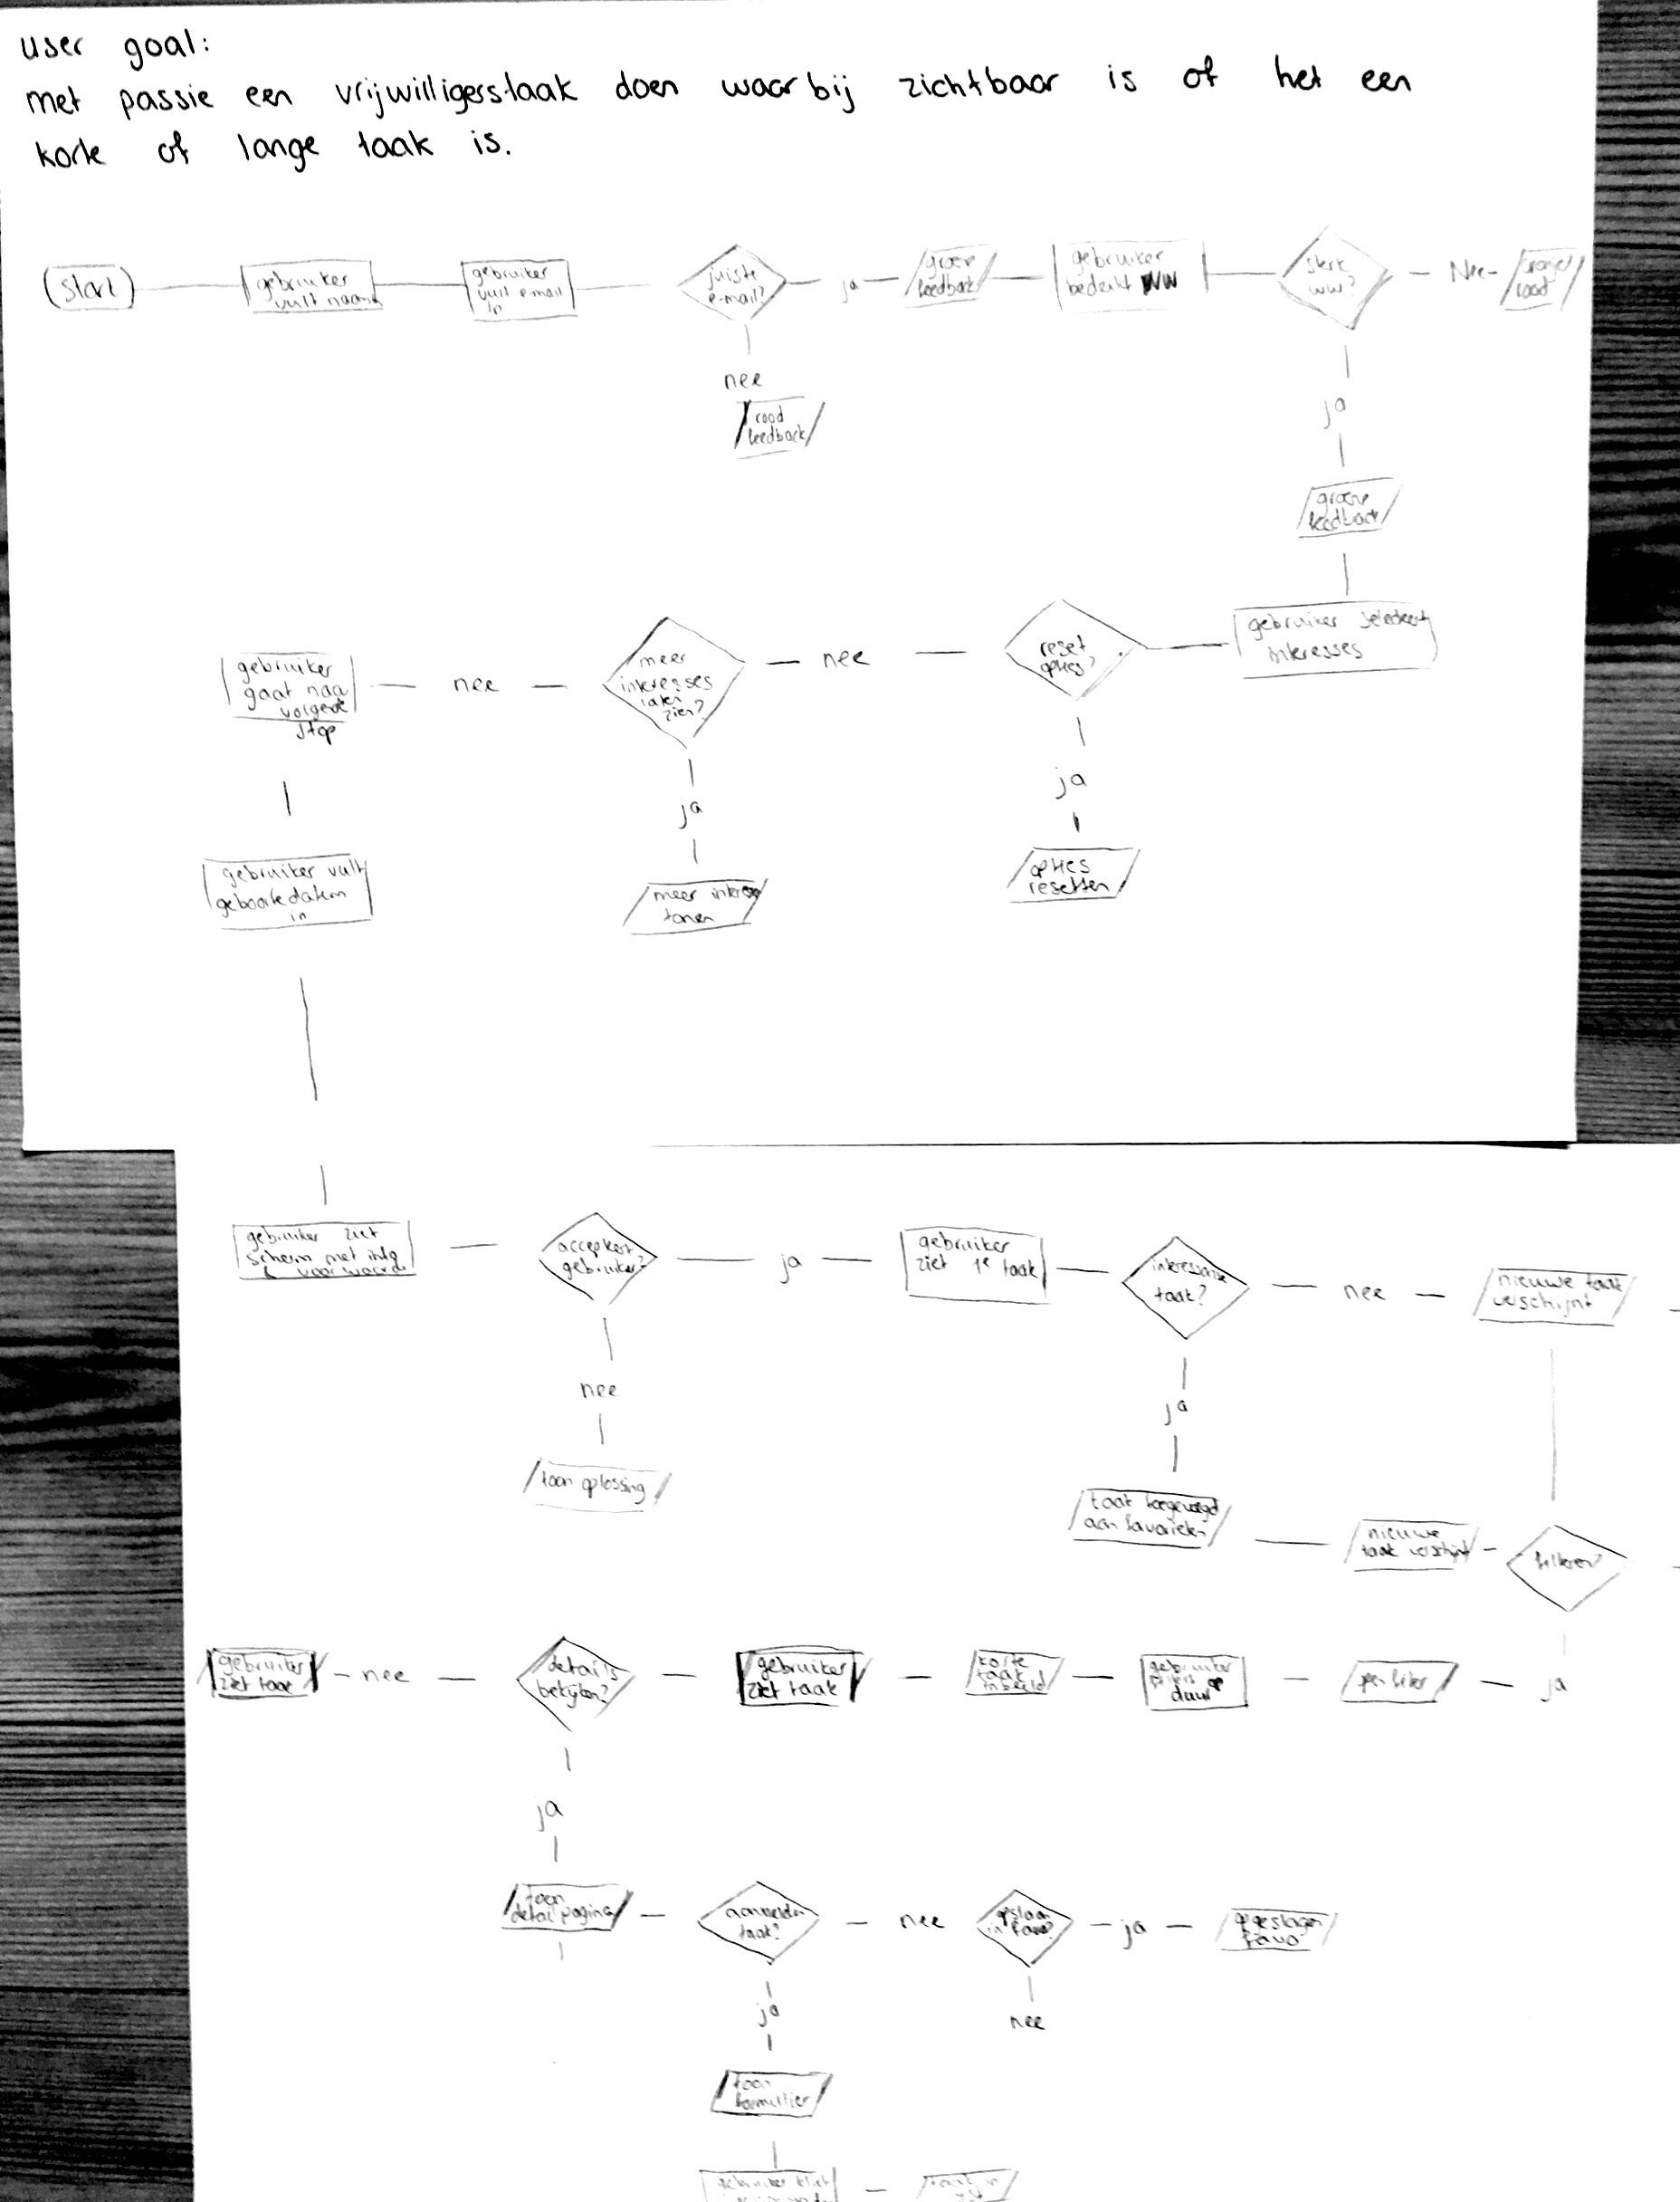 user goal:
met passie een vrijwilligerstaak doen waarbij zichtbaar is of het een
korte of lange taak is.
start
gebruiker
vult naam
gebruiker
vult e-mail
in
juiste
e-mail?
ja
groene
feedback
gebruiker
bedenkt WW
sterk
ww?
Nee
oranje/
rood
nee
rood
feedback
ja
groene
feedback
gebruiker selecteert
interesses
reset
opties?
nee
meer
interesses
laten
zien?
nee
gebruiker
gaat naa
volgende
stap
ja
opties
resetten
ja
meer interesse
tonen
gebruiker vult
geboortedatum
in
gebruiker ziet
scherm met info
& voorwaarde
accepteert
gebruiker?
ja
gebruiker
ziet 1e taak
interessante
taak?
nee
nieuwe taak
verschijnt
nee
toon oplossing
ja
taak toegevoegd
aan favorieten
nieuwe
taak verschijnt
filteren?
ja
open filter
gebruiker
op
duur
korte
taak
in beeld
gebruiker
ziet taak
details
bekijken?
nee
gebruiker
ziet taak
ja
toon
detailpagina
aanmelden
taak?
nee
opslaan
in favo?
ja
opgeslagen
favo
ja
nee
toon
formulier
gebruiker klikt